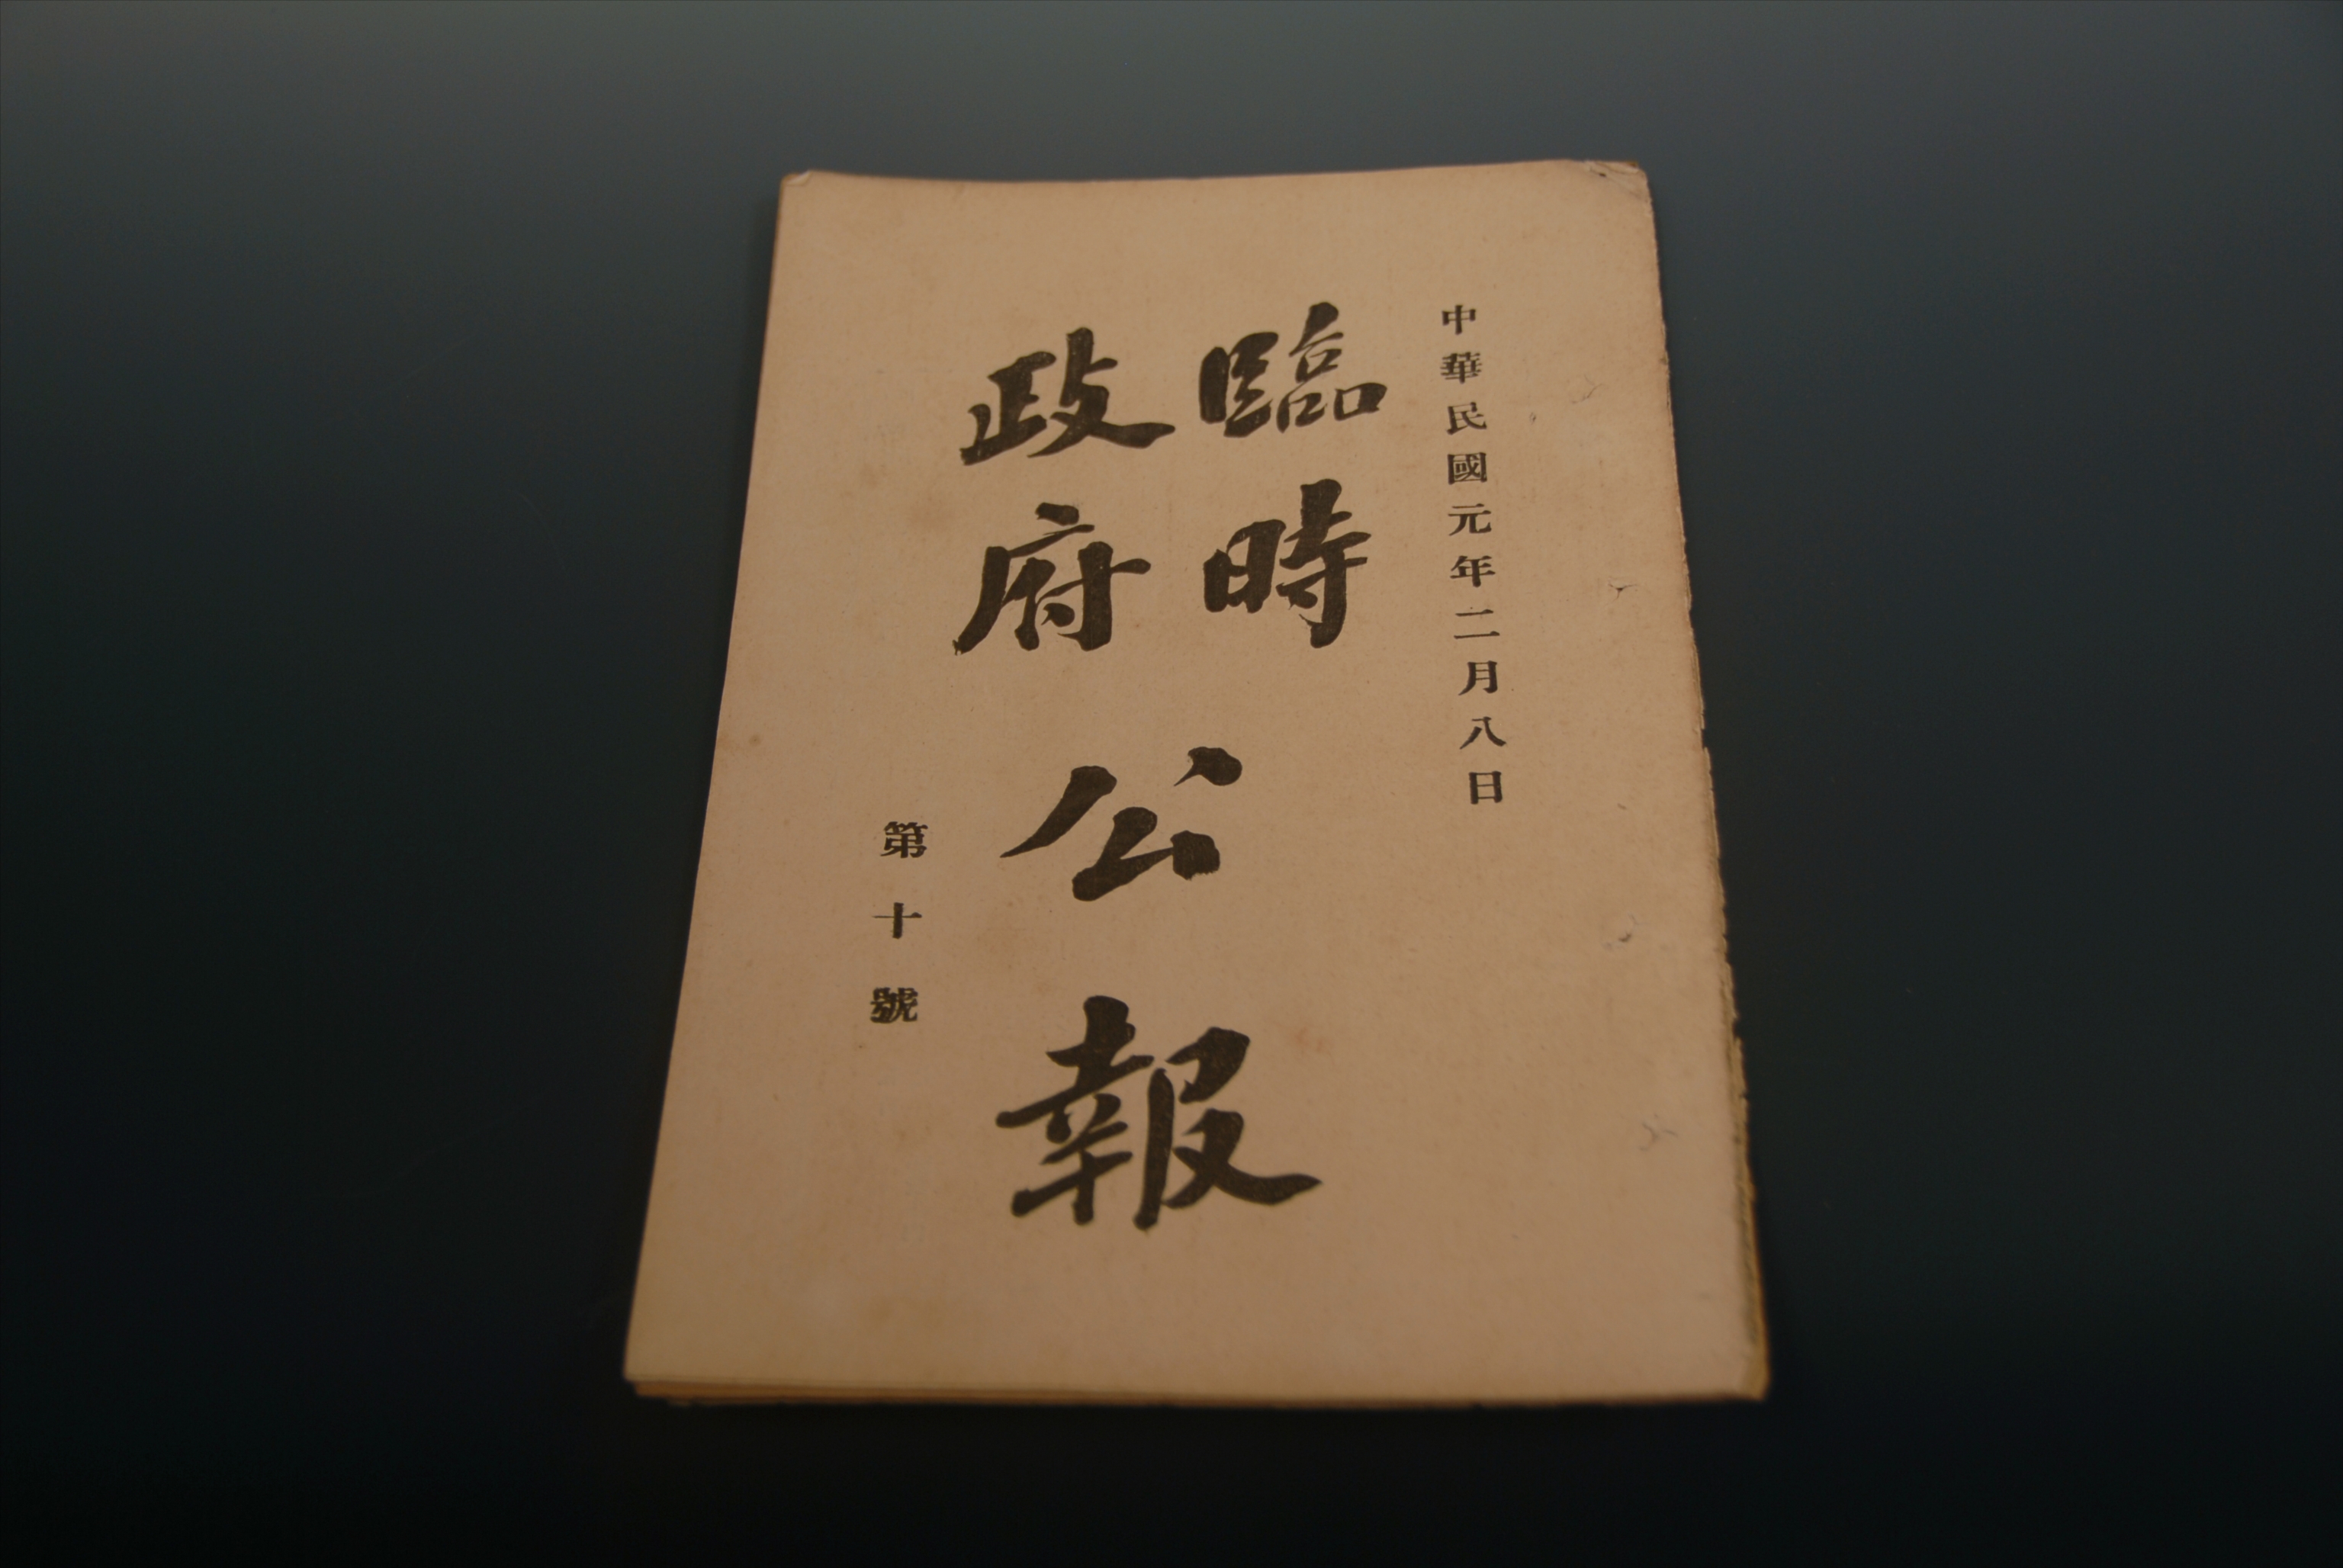 中華民國元年二月八日
臨時
政府
公報
第十號